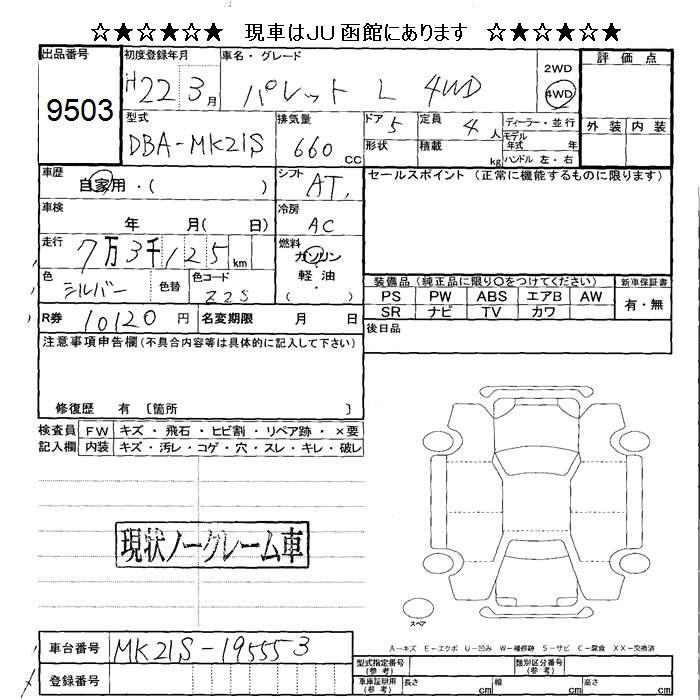 ☆★☆★☆☆ 現車はJU函館にあります ☆★☆★☆☆
出品番号
9503
初度登録年月 車名・グレード
H22 3月 パレット L 4WD
2WD
4WD
評価点
外装 内装
型式 排気量 ドア 定員 ディーラー・並行
DBA-MK21S 660cc 5 4人
モデル年式 年
形状 積載 kg ハンドル 左・右
車歴 シフト
自家用・( ) AT,
車検 冷房
年 月( 日) AC
走行 燃料
7万3千125km ガソリン
軽・油
( )
色 色替 色コード
シルバー Z2S
R券 10120円 名変期限 月 日
セールスポイント (正常に機能するものに限ります)
装備品(純正品に限り○をつけてください) 新車保証書
PS PW ABS エアB AW
SR ナビ TV カワ
有・無
後日品
注意事項申告欄(不具合内容等は具体的に記入して下さい)
修復歴 有 〔箇所 〕
検査員記入欄
FW キズ・飛石・ヒビ割・リペア跡・×要
内装 キズ・汚レ・コゲ・穴・スレ・キレ・破レ
現状ノークレーム車
スペア
A-キズ E-エクボ U-凹み W-補修跡 S-サビ C-腐食 XX-交換済
車台番号 MK21S-195553
登録番号
型式指定番号(参考) 類別区分番号(参考)
車庫証明用(参考) 長さ cm 幅 cm 高さ cm